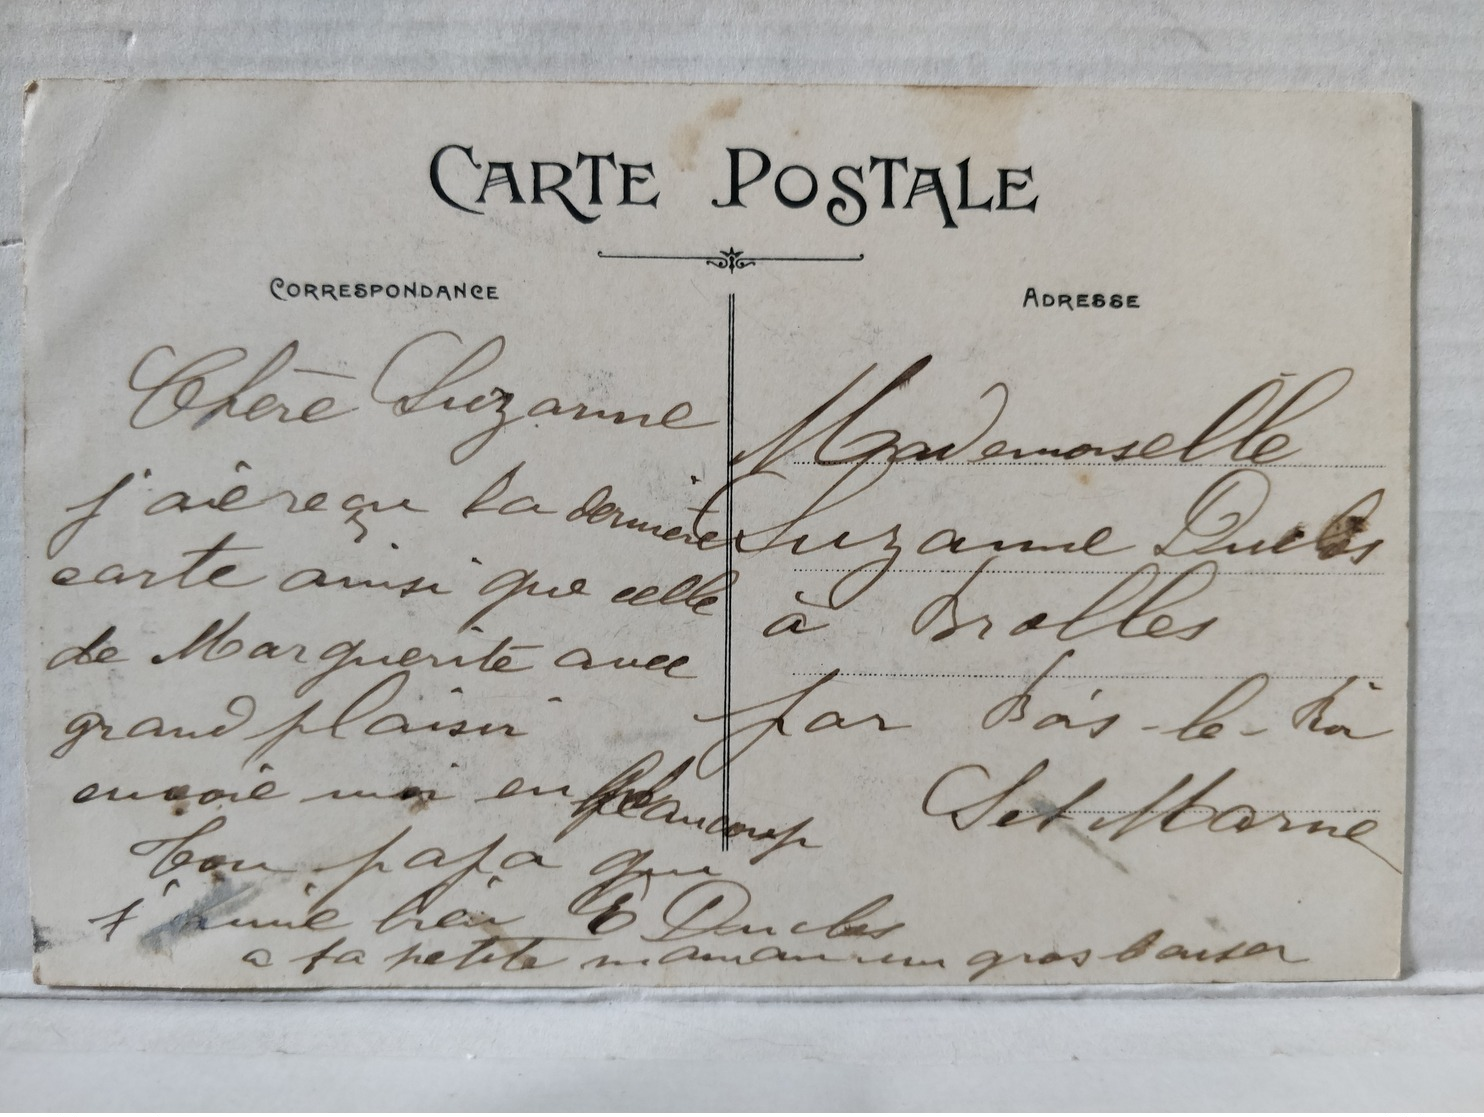 CARTE POSTALE
CORRESPONDANCE
ADRESSE
Chère Suzanne
j'aie reçu la dernière
carte ainsi que celle
de Marguerite avec
grand plaisir
envoie moi en beaucoup
Ton papa qui
t'aime bien E Duclos
a ta petite maman un gros baiser
Mademoiselle
Suzanne Duclos
à Brolles
par Bois-le-Roi
Set Marne